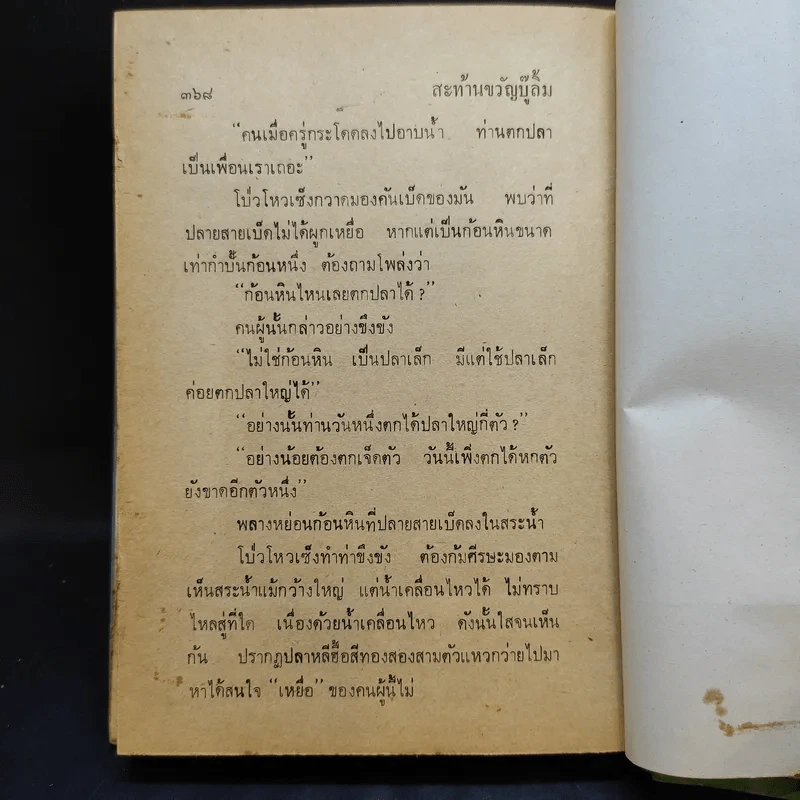 ๓๖๘ สะท้านขวัญบู๊ลิ้ม
“คนเมื่อครู่กระโดดลงไปอาบน้ำ ท่านตกปลา
เป็นเพื่อนเราเถอะ”
โบ่วโหวเซ็งกวาดมองคันเบ็ดของมัน พบว่าที่
ปลายสายเบ็ดไม่ได้ผูกเหยื่อ หากแต่เป็นก้อนหินขนาด
เท่ากำปั้นก้อนหนึ่ง ต้องถามโพล่งว่า
“ก้อนหินไหนเลยตกปลาได้ ?”
คนผู้นั้นกล่าวอย่างขึงขัง
“ไม่ใช่ก้อนหิน เป็นปลาเล็ก มีแต่ใช้ปลาเล็ก
ค่อยตกปลาใหญ่ได้”
“อย่างนั้นท่านวันหนึ่งตกได้ปลาใหญ่กี่ตัว ?”
“อย่างน้อยต้องตกเจ็ดตัว วันนี้เพิ่งตกได้หกตัว
ยังขาดอีกตัวหนึ่ง”
พลางหย่อนก้อนหินที่ปลายสายเบ็ดลงในสระน้ำ
โบ่วโหวเซ็งทำท่าขึงขัง ต้องก้มศีรษะมองตาม
เห็นสระน้ำแม้กว้างใหญ่ แต่น้ำเคลื่อนไหวได้ ไม่ทราบ
ไหลสู่ที่ใด เนื่องด้วยน้ำเคลื่อนไหว ดังนั้นใสจนเห็น
ก้น ปรากฏปลาหลีฮื้อสีทองสองสามตัวแหวกว่ายไปมา
หาได้สนใจ “เหยื่อ” ของคนผู้นี้ไม่